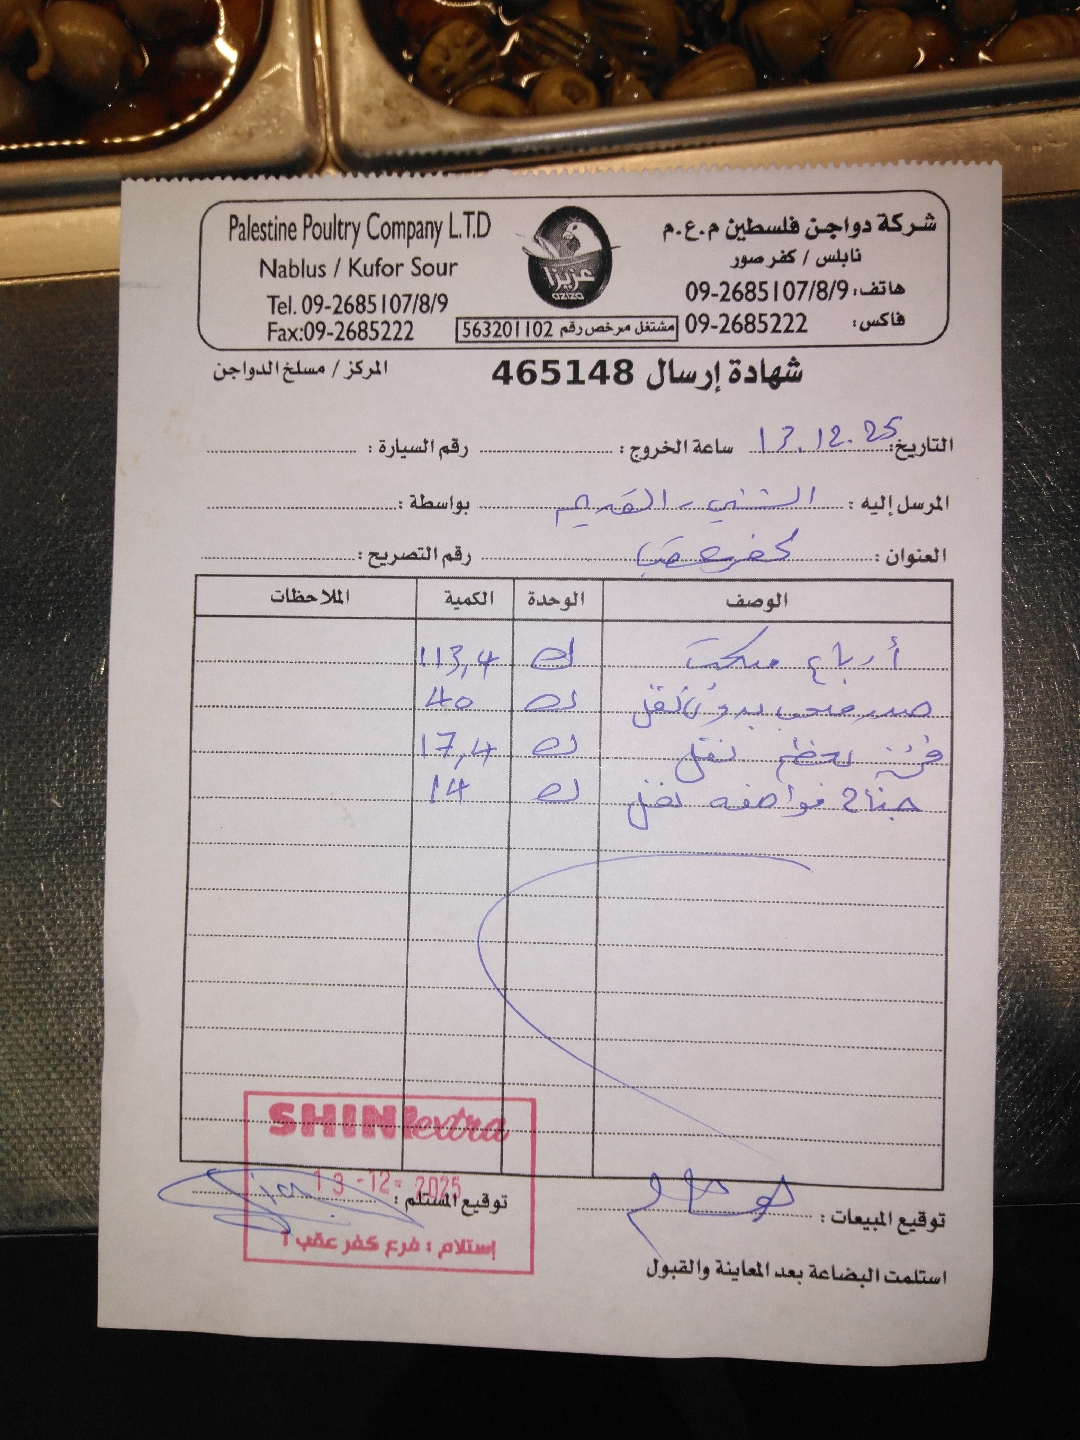 Palestine Poultry Company L.T.D
Nablus / Kufor Sour
Tel. 09-2685107/8/9
Fax:09-2685222
عزيزا
aziza
مشتغل مرخص رقم 563201102
شركة دواجن فلسطين م.ع.م
نابلس / كفر صور
هاتف: 09-2685107/8/9
فاكس: 09-2685222
شهادة إرسال 465148
المركز / مسلخ الدواجن
التاريخ: 13.12.25 ساعة الخروج: رقم السيارة:
المرسل إليه: الشني - القديم بواسطة:
العنوان: كفر عقب رقم التصريح:
الوصف الوحدة الكمية الملاحظات
أرباع ك 113,4
صدر بدون نقل ك 40
نقل ك 17,4
جناح نقل ك 14
SHINI extra
13-12-2025
توقيع المستلم:
إستلام: فرع كفر عقب 1
توقيع المبيعات:
استلمت البضاعة بعد المعاينة والقبول